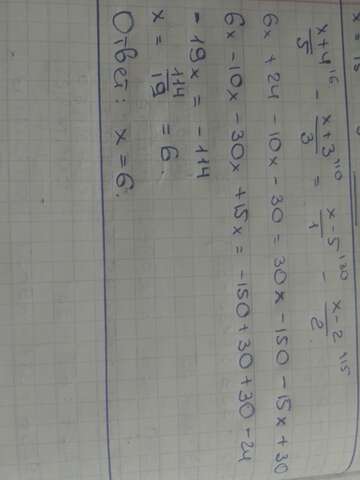 x = 15
x+4/5 ^16 - x+3/3 ^110 = x-5/1 ^130 - x-2/2 ^115
6x + 24 - 10x - 30 = 30x - 150 - 15x + 30
6x - 10x - 30x + 15x = -150 + 30 + 30 - 24
- 19x = - 114
x = 114/19 = 6.
Ответ: x = 6.